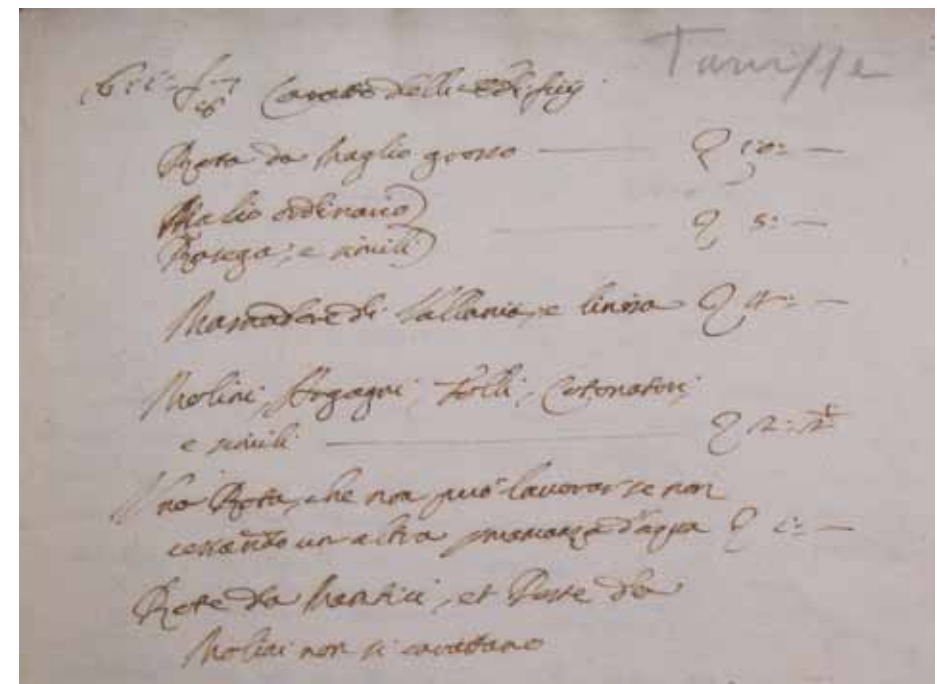 Tariffe
Carato delli edifitij
Rota da maglio grosso — 10: —
Malio ordinario
Rasega, e simili — 5: —
di Vallania, e limisa — 4: —
Molini, Argagni, Folli, Cotonatori,
e simili — 2: 1/2
Una Rota, che non può lavorar se non
cessando un altra per mancanza d'aqua — 1: —
Rote da Mantici, et Poste da
Molini non si carattano